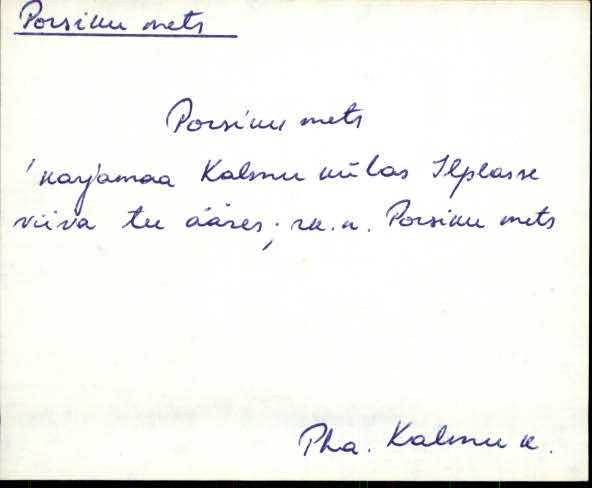 Porsiku mets
Porsiku mets
'karjamaa Kalmu külas Ilplasse
viiva tee ääres; rk.n. Porsiku mets
Pha. Kalmu k.